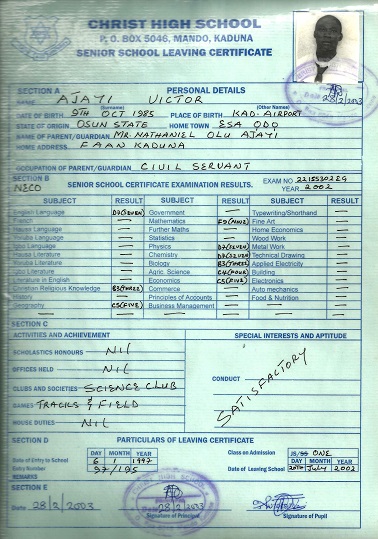 CHRIST HIGH SCHOOL
P. O. BOX 5046, MANDO, KADUNA
SENIOR SCHOOL LEAVING CERTIFICATE
28/2/2003
SECTION A PERSONAL DETAILS
NAME AJAYI VICTOR
(Surname) (Other Names)
DATE OF BIRTH 9TH OCT 1985 PLACE OF BIRTH KAD-AIRPORT
STATE OF ORIGIN OSUN STATE HOME TOWN ESA ODO
NAME OF PARENT/GUARDIAN MR. NATHANIEL OLU AJAYI
HOME ADDRESS FAAN KADUNA
OCCUPATION OF PARENT/GUARDIAN CIVIL SERVANT
SECTION B EXAM NO
NECO SENIOR SCHOOL CERTIFICATE EXAMINATION RESULTS. YEAR 2002
SUBJECT RESULT SUBJECT RESULT SUBJECT RESULT
English Language D7(SEVEN) Government — Typewriting/Shorthand —
French — Mathematics F9(NINE) Fine Art —
Hausa Language — Further Maths — Home Economics —
Yoruba Language — Statistics — Wood Work —
Igbo Language — Physics D7(SEVEN) Metal Work —
Hausa Literature — Chemistry D7(SEVEN) Technical Drawing —
Yoruba Literature — Biology B3(THREE) Applied Electricity —
Igbo Literature — Agric Science C4(FOUR) Building —
Literature in English — Economics C5(FIVE) Electronics —
Christian Religious Knowledge B3(THREE) Commerce — Auto mechanics —
History — Principles of Accounts — Food & Nutrition —
Geography C5(FIVE) Business Management —
SECTION C
ACTIVITIES AND ACHIEVEMENT SPECIAL INTERESTS AND APTITUDE
SCHOLASTICS HONOURS NIL
OFFICES HELD NIL
CONDUCT SATISFACTORY
CLUBS AND SOCIETIES SCIENCE CLUB
GAMES TRACKS & FIELD
HOUSE DUTIES NIL
SECTION D PARTICULARS OF LEAVING CERTIFICATE
DAY MONTH YEAR Class on Admission JS/SS ONE
Date of Entry to School 6 1 1997 DAY MONTH YEAR
Entry Number 97/195 Date of Leaving School 20TH July 2002
REMARKS
SECTION E
Date 28/2/2003 28/2/2003
Signature of Principal Signature of Pupil